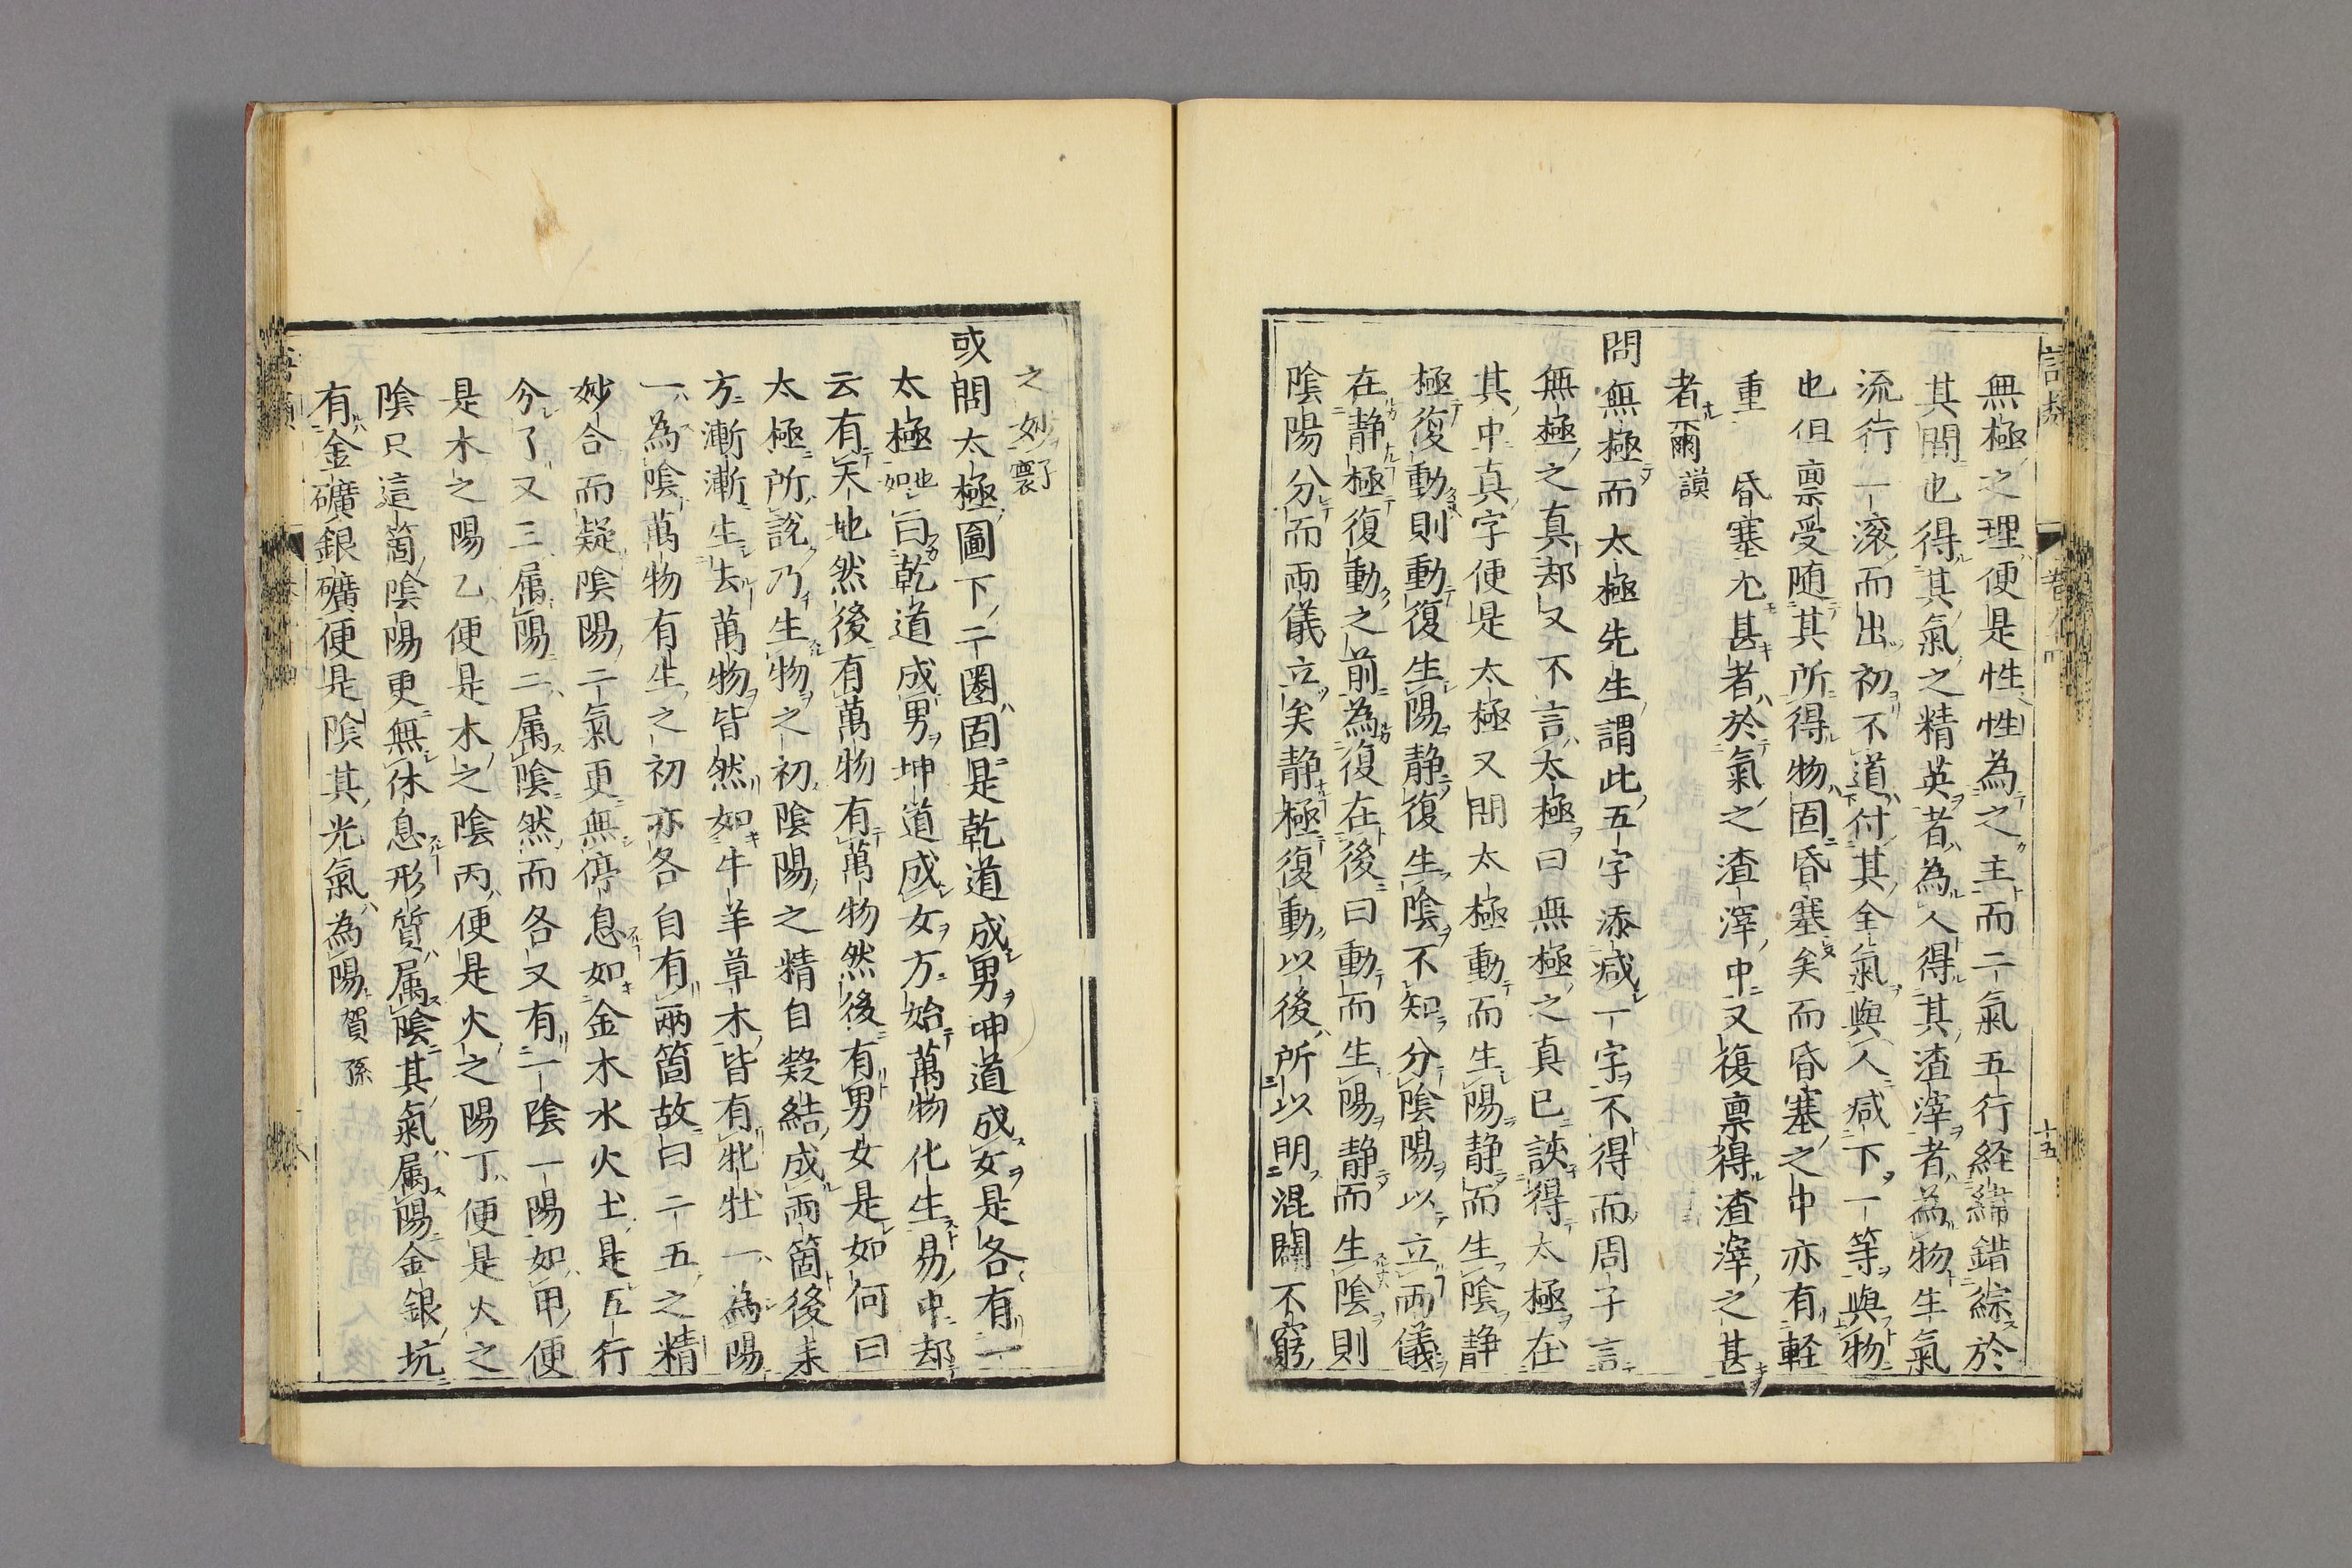 無極之理便是性性為之主而二氣五行経緯錯綜於
其間也得其氣之精英者為人得其渣滓者為物生氣
流行一滾而出初不道付其全氣與人减下一等與物
也但禀受随其所得物固昏塞矣而昏塞之中亦有軽
重　昏塞尤甚者於氣之渣滓中又復禀得渣滓之甚
者爾謨
問無極而太極先生謂此五字添减一字不得而周子言
無極之真却又不言太極曰無極之真已該得太極在
其中真字便是太極又問太極動而生陽静而生陰静
極復動則動復生陽静復生陰不知分陰陽以立兩儀
在静極復動之前為復在後曰動而生陽静而生陰則
陰陽分而兩儀立矣静極復動以後所以明混闢不窮
之妙子寰
或問太極圖下二圈固是乾道成男坤道成女是各有一
太極也如曰乾道成男坤道成女方始萬物化生易中却
云有天地然後有萬物有萬物然後有男女是如何曰
太極所說乃生物之初陰陽之精自凝結成兩箇後来
方漸漸生去萬物皆然如牛羊草木皆有牝牡一為陽
一為陰萬物有生之初亦各自有兩箇故曰二五之精
妙合而凝陰陽二氣更無停息如金木水火土是五行
分了又三属陽二属陰然而各又有一陰一陽如甲便
是木之陽乙便是木之陰丙便是火之陽丁便是火之
陰只這箇陰陽更無休息形質属陰其氣属陽金銀坑
有金礦銀礦便是陰其光氣為陽賀孫
十五